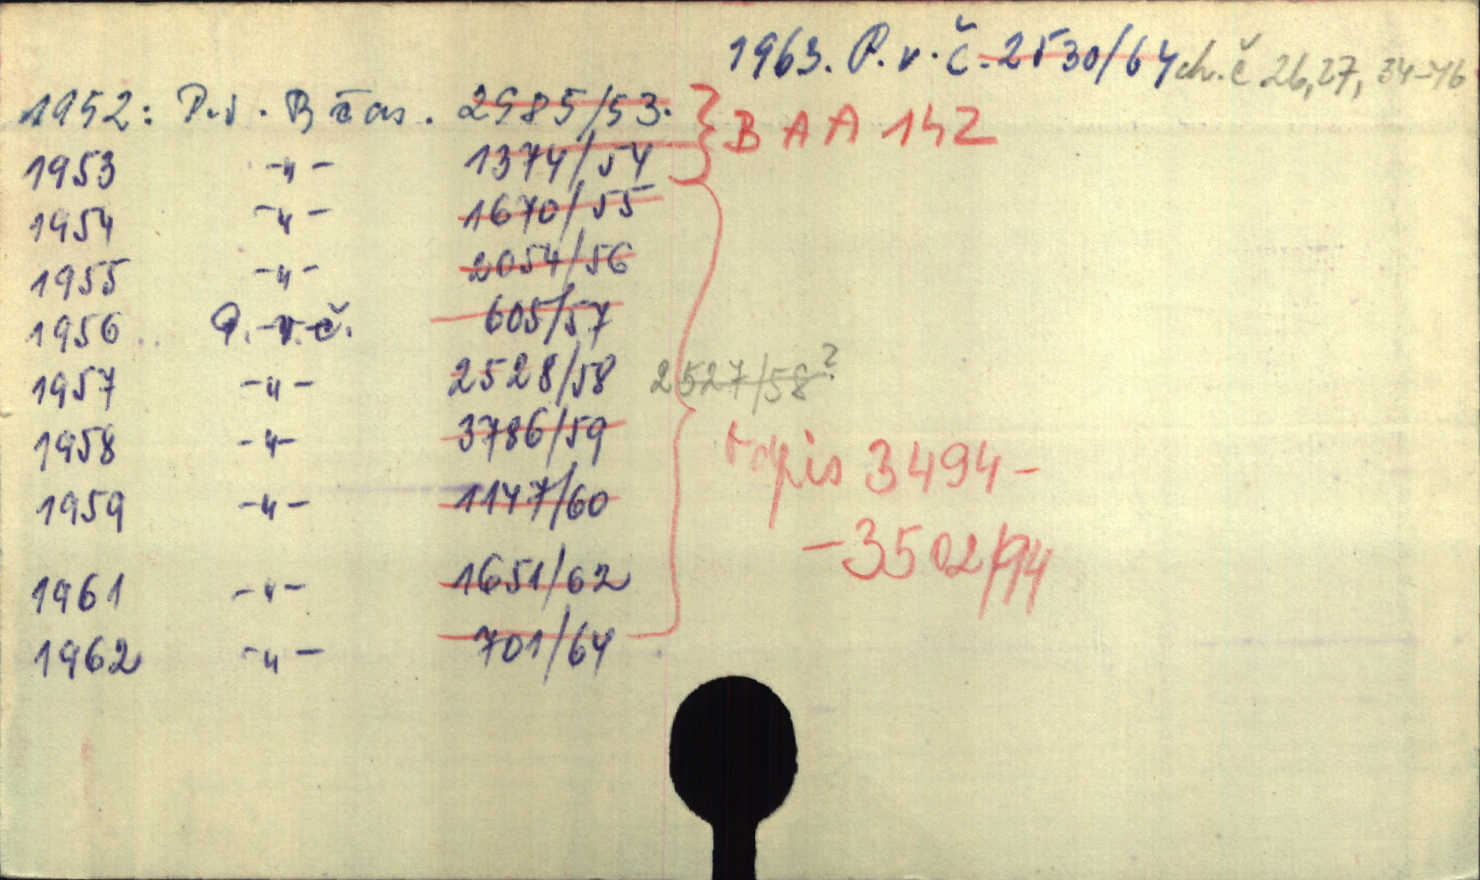 1963. P.v.č. 2530/64 ch. č 26,27, 34-46
1952: P.v. B čas. 2985/53.
BAA 142
1953 -„- 1374/54
1954 -„- 1670/55
1955 -„- 2054/56
1956 P.v.č. 605/57
1957 -„- 2528/58 2527/58?
1958 -„- 3786/59
3494-
1959 -„- 1147/60
-3502/94
1961 -„- 1651/62
1962 -„- 701/64